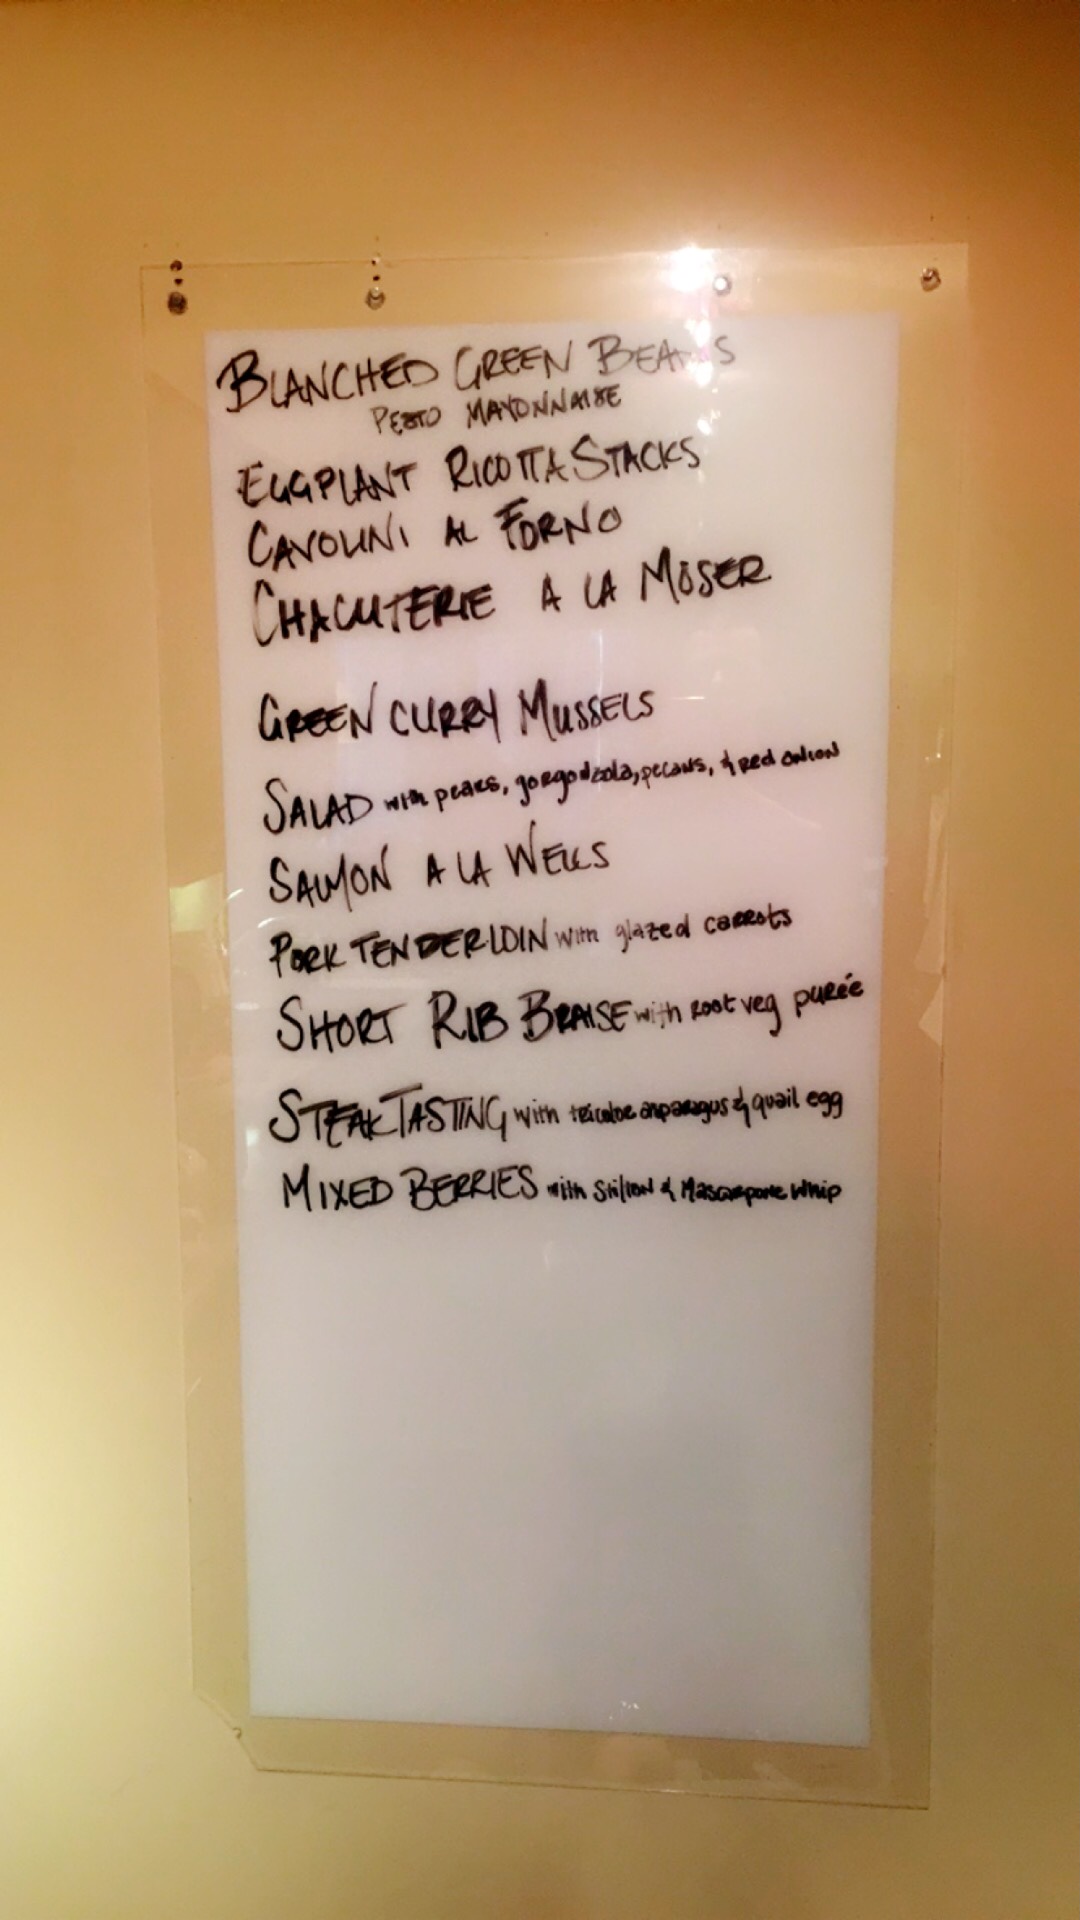 BLANCHED GREEN BEANS
PESTO MAYONNAISE
EGGPLANT RICOTTA STACKS
CAVOLINI AL FORNO
CHACUTERIE A LA MOSER
GREEN CURRY MUSSELS
SALAD with pears, gorgonzola, pecans, & red onion
SALMON A LA WELLS
PORK TENDERLOIN with glazed carrots
SHORT RIB BRAISE with root veg purée
STEAK TASTING with tricolor asparagus & quail egg
MIXED BERRIES with Stilton & Mascarpone whip